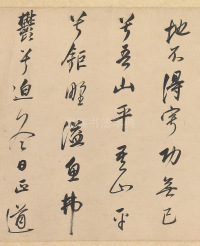 地不得寧功無已
兮吾山平吾山平
兮鉅野溢魚沸
鬱兮迫冬日正道